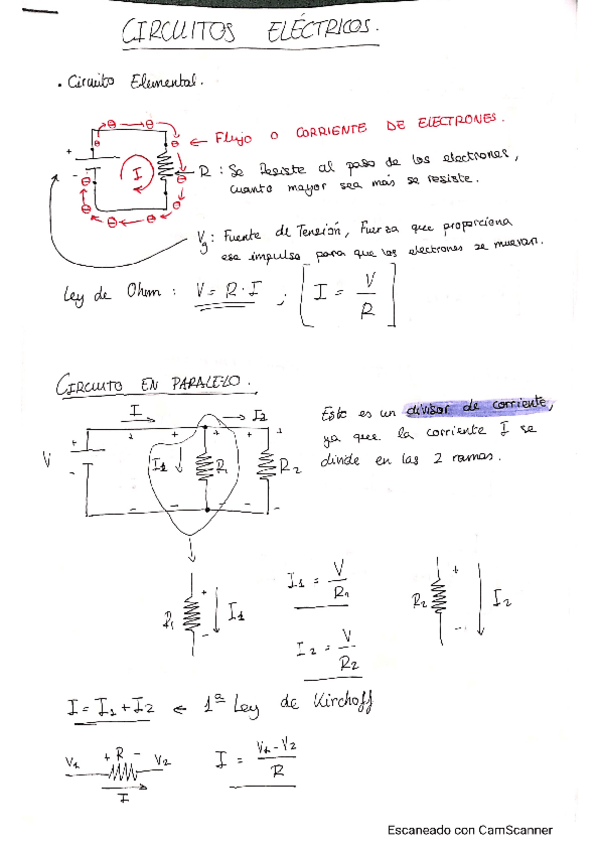 CIRCUITOS ELÉCTRICOS.
· Circuito Elemental.
← Flujo o CORRIENTE DE ELECTRONES.
+
-
I
R : Se Resiste al paso de los electrones,
cuanto mayor sea más se resiste.
Vg : Fuente de Tensión, Fuerza que proporciona
ese impulso para que los electrones se muevan.
Ley de Ohm : V = R · I ; [ I = V / R ]
CIRCUITO EN PARALELO.
I → I2
V + - I1 ↓ R1 R2
Este es un divisor de corriente,
ya que la corriente I se
divide en las 2 ramas.
R1 + - I1
I1 = V / R1
R2 + - I2
I2 = V / R2
I = I1 + I2 ← 1ª Ley de Kirchoff
V1 + R - V2
I
I = V1 - V2 / R
Escaneado con CamScanner